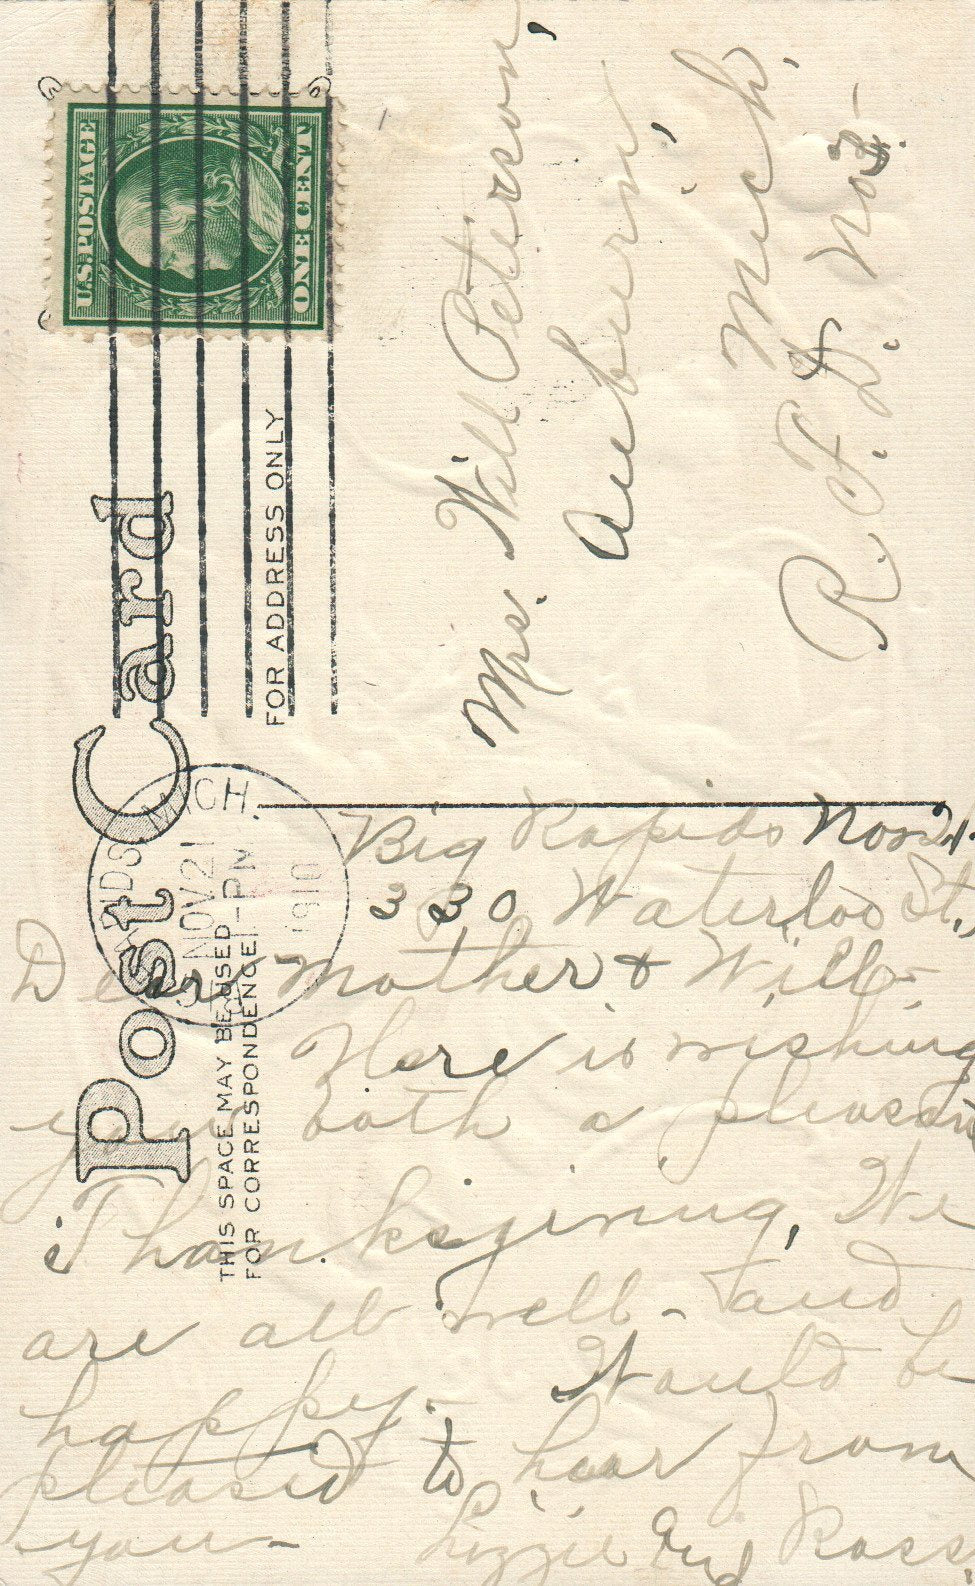 Post Card
THIS SPACE MAY BE USED
FOR CORRESPONDENCE
FOR ADDRESS ONLY
U.S. POSTAGE
ONE CENT
RAPIDS, MICH.
NOV 21
1-PM
1910
Mrs. Will Peterson,
Auburn,
Mich.
R. F. D. No 3.-
Big Rapids Nov 21.
330 Waterloo St.,
Dear Mother & Will-
Here is wishing
you both a pleasant
Thanksgiving, We
are all well - and
happy. Would be
pleased to hear from
you- Lizzie and Ross